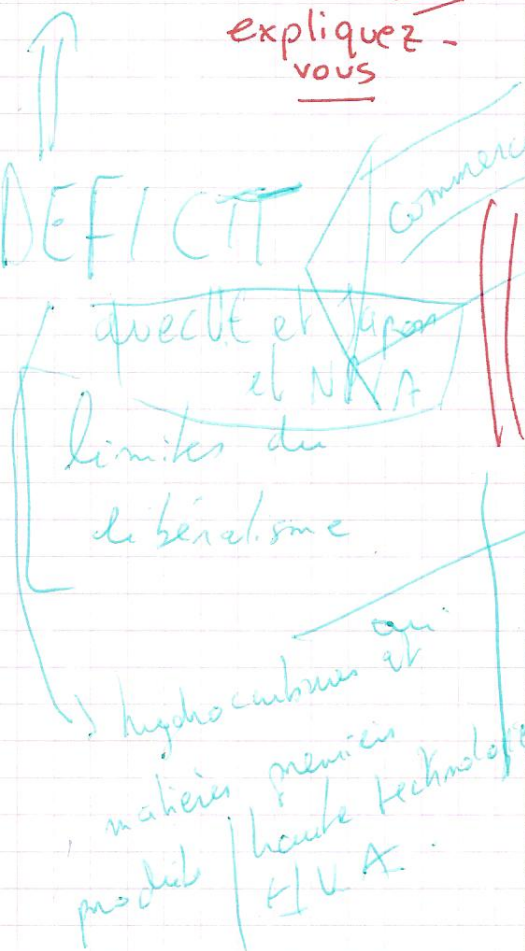 expliquez-
vous
DEFICIT
commerc
avec UE et Japon
et NPIA
limites du
libéralisme
qui
hydrocarbures et
matières premières
produits haute technologie